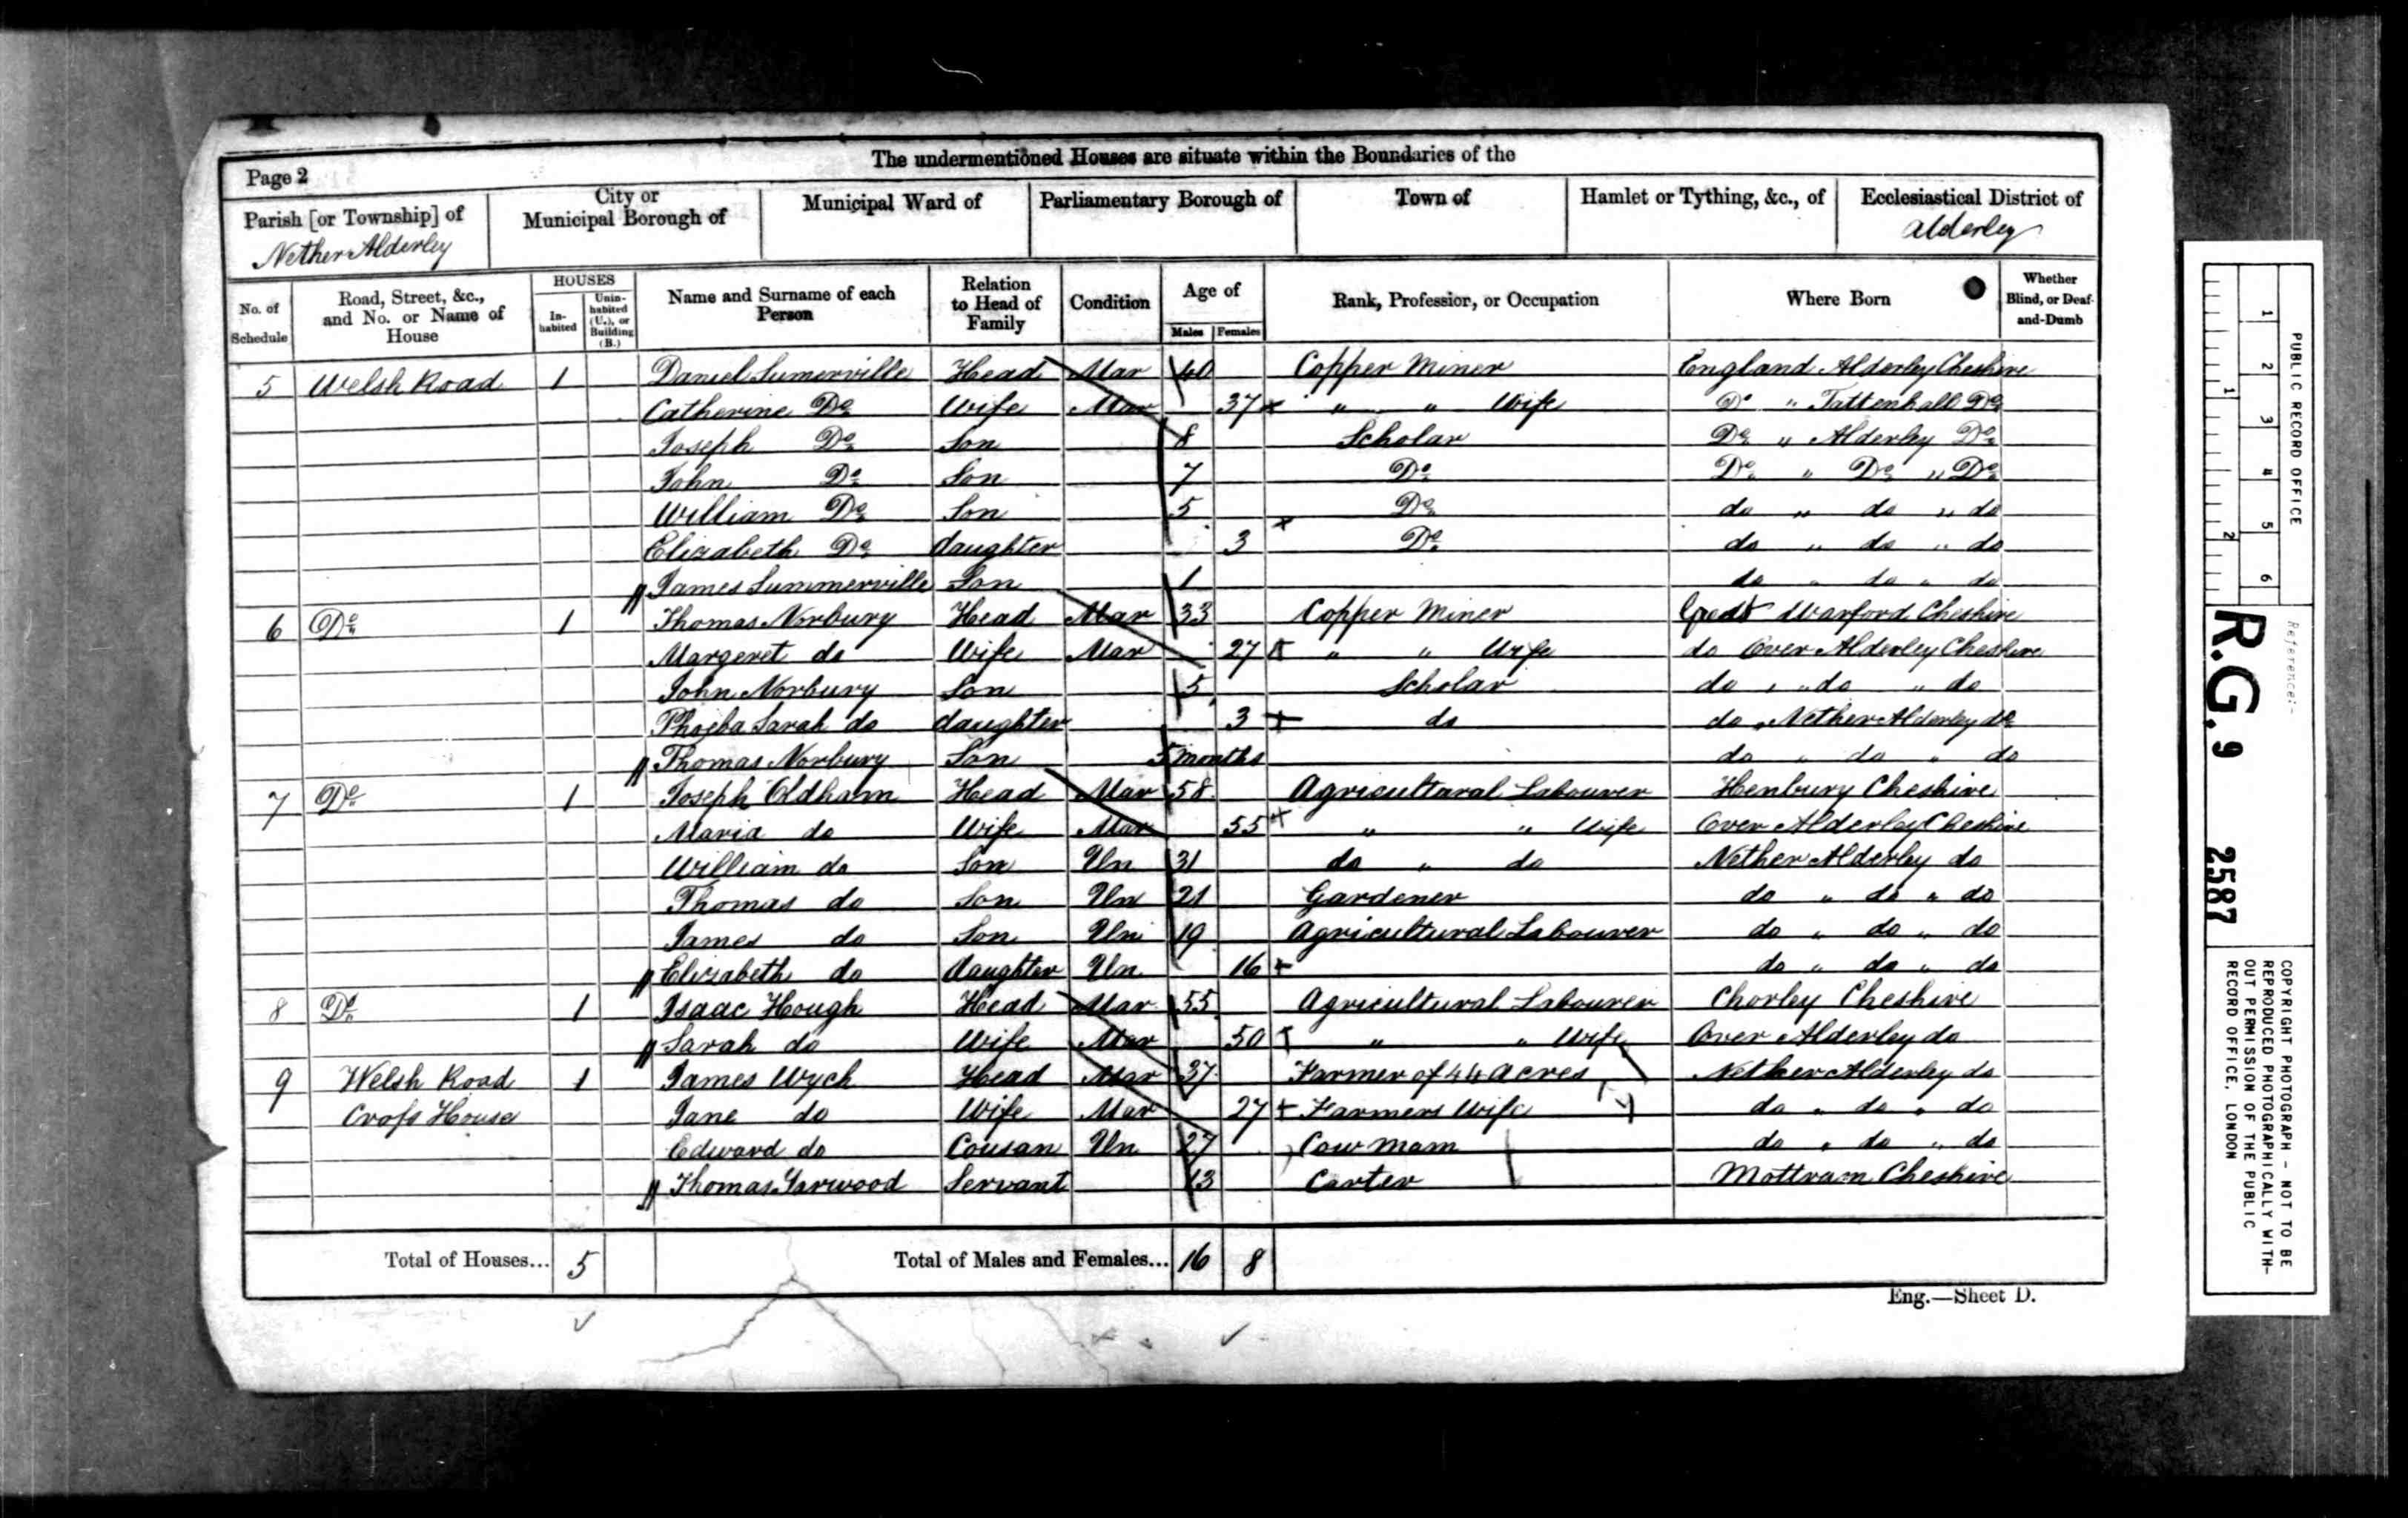 The undermentioned Houses are situate within the Boundaries of the
Page 2
Parish [or Township] of
Nether Alderley
City or
Municipal Borough of
Municipal Ward of
Parliamentary Borough of
Town of
Hamlet or Tything, &c., of
Ecclesiastical District of
Alderley
No. of
Schedule
Road, Street, &c.,
and No. or Name of
House
HOUSES
In-
habited
Unin-
habited
(U.), or
Building
(B.)
Name and Surname of each
Person
Relation
to Head of
Family
Condition
Age of
Males Females
Rank, Profession, or Occupation
Where Born
Whether
Blind, or Deaf-
and-Dumb
5 Welsh Road 1 Daniel Sumerville Head Mar 40 Copper Miner England Alderley Cheshire
Catherine Do Wife Mar 37 " " Wife Do " Tattenhall Do
Joseph Do Son 8 Scholar Do " Alderley Do
John Do Son 7 Do Do " Do " Do
William Do Son 5 Do do " do " do
Elizabeth Do daughter 3 Do do " do " do
James Summerville Son 1 do " do " do
6 Do 1 Thomas Norbury Head Mar 33 Copper Miner Great Warford Cheshire
Margeret do Wife Mar 27 " " Wife do Over Alderley Cheshire
John Norbury Son 5 Scholar do " do " do
Phoeba Sarah do daughter 3 do do " Nether Alderley do
Thomas Norbury Son 5 months do " do " do
7 Do 1 Joseph Oldham Head Mar 58 Agricultural Labourer Henbury Cheshire
Maria do Wife Mar 55 " " Wife Over Alderley Cheshire
William do Son Un 31 do " do Nether Alderley do
Thomas do Son Un 21 Gardener do " do " do
James do Son Un 19 Agricultural Labourer do " do " do
Elizabeth do daughter Un 16 do " do " do
8 Do 1 Isaac Hough Head Mar 55 Agricultural Labourer Chorley Cheshire
Sarah do Wife Mar 50 " " Wife Over Alderley do
9 Welsh Road 1 James Wych Head Mar 37 Farmer of 44 Acres Nether Alderley do
Crofs House Jane do Wife Mar 27 Farmers Wife do " do " do
Edward do Cousan Un 27 Cow Mam do " do " do
Thomas Yarwood Servant 13 Carter Mottram Cheshire
Total of Houses... 5 Total of Males and Females... 16 8
Eng.—Sheet D.
PUBLIC RECORD OFFICE
1 2 3 4 5 6
1 2
Reference:-
R.G. 9 2587
COPYRIGHT PHOTOGRAPH - NOT TO BE
REPRODUCED PHOTOGRAPHICALLY WITH-
OUT PERMISSION OF THE PUBLIC
RECORD OFFICE, LONDON